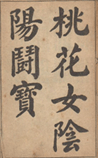 桃花女陰
陽鬪寶